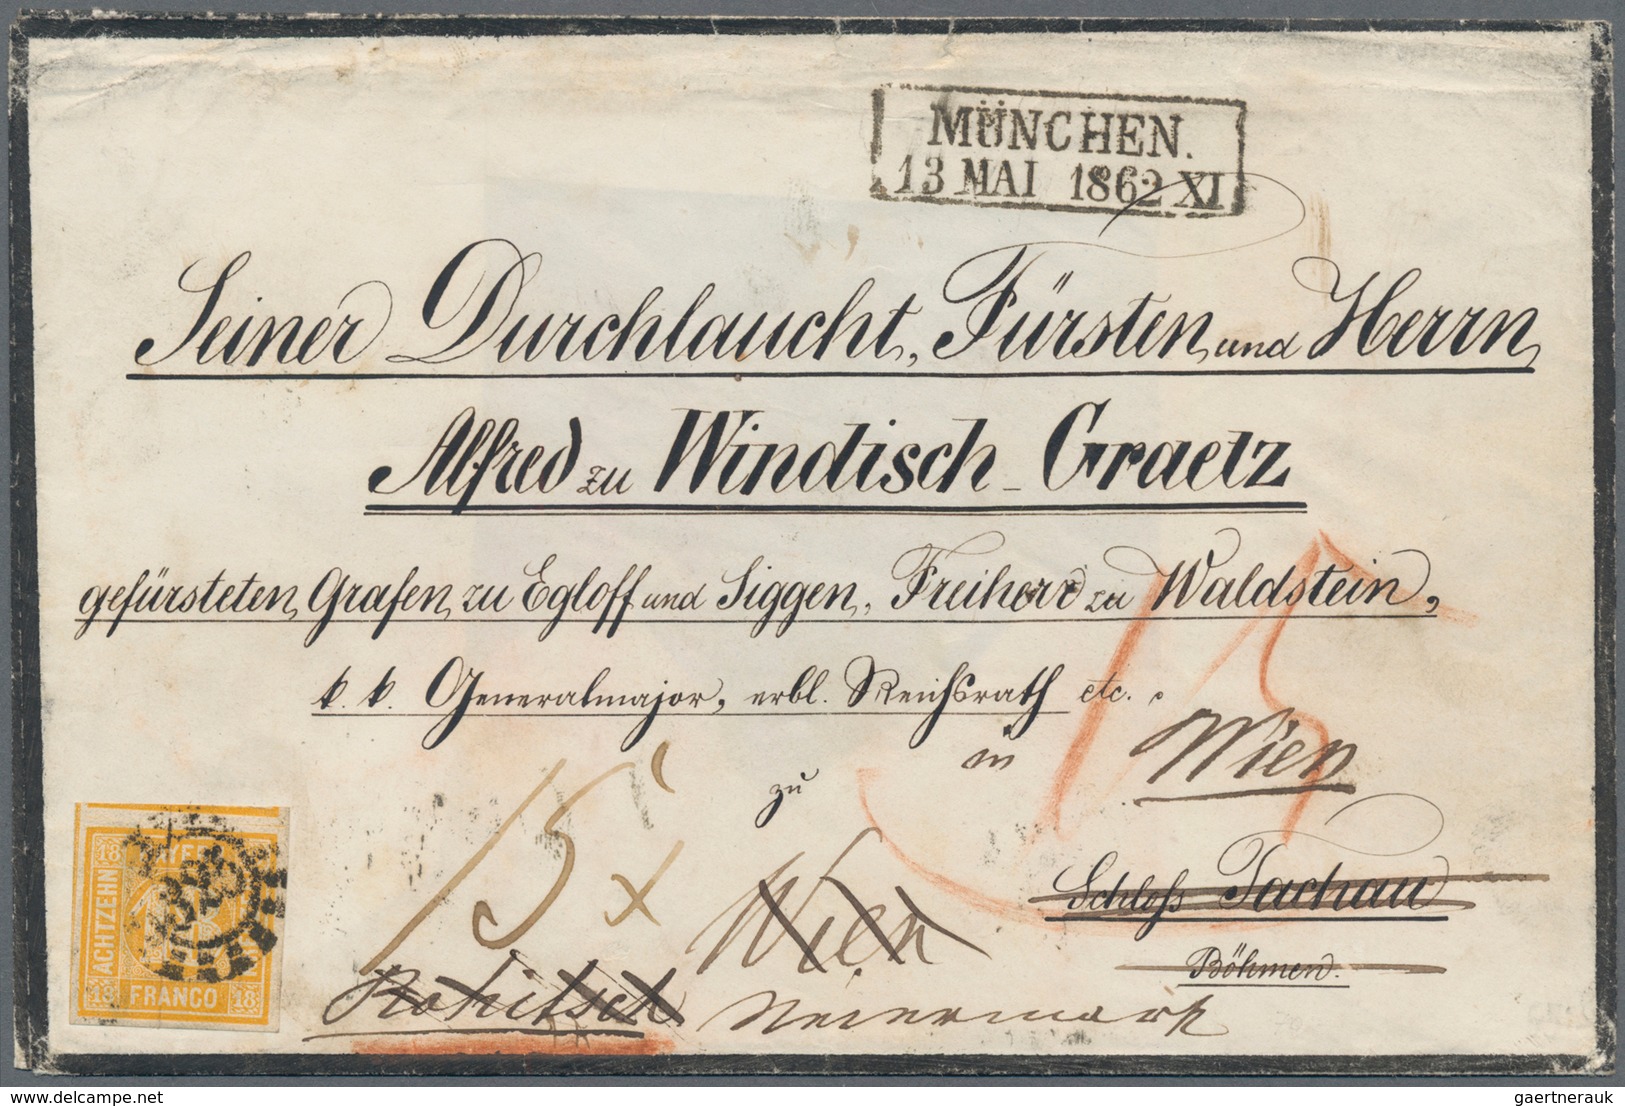 MÜNCHEN.
13 MAI 1862 XI
Seiner Durchlaucht, Fürsten und Herrn
Alfred zu Windisch-Graetz
gefürsteten Grafen zu Egloff und Siggen, Freiherr zu Waldstein,
k. k. Generalmajor, erbl. Reichsrath etc.
in Wien
zu
15
15 x
Wien
Schloß Tachau
Böhmen.
Rohitsch
18
ACHTZEHN
FRANCO
18 18
325
gaertnerauk